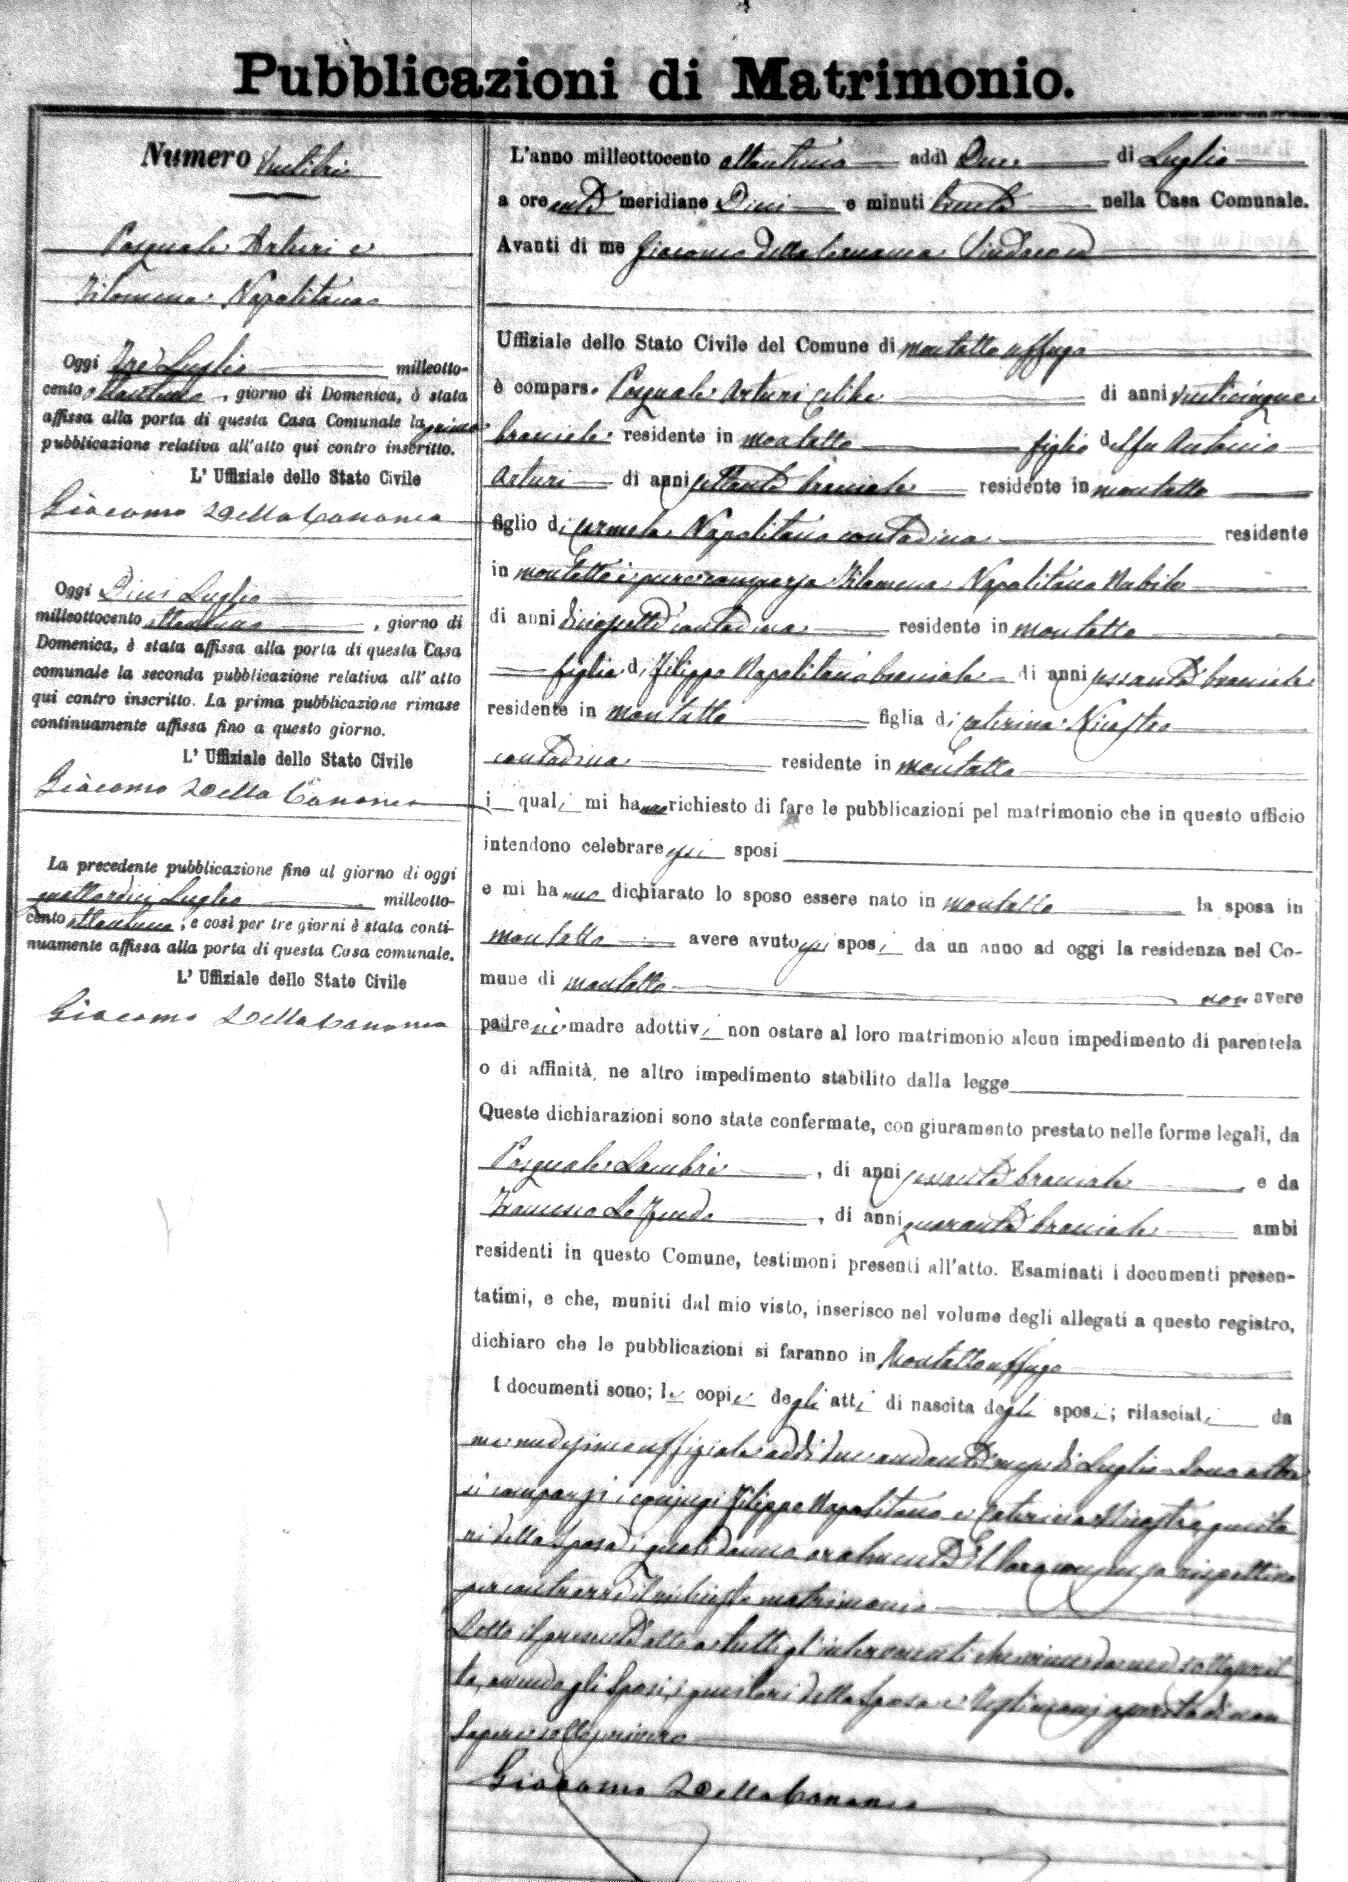 Pubblicazioni di Matrimonio.
Numero Ventitre
Pasquale Arturi e
Filomena Napolitano
Oggi Tre Luglio milleotto-
cento ottantuno, giorno di Domenica, è stata
affissa alla porta di questa Casa Comunale la prima
pubblicazione relativa all'atto qui contro inscritto.
L'Uffiziale dello Stato Civile
Giacomo Della Cananea
Oggi Dieci Luglio
milleottocento ottantuno, giorno di
Domenica, è stata affissa alla porta di questa Casa
comunale la seconda pubblicazione relativa all'atto
qui contro inscritto. La prima pubblicazione rimase
continuamente affissa fino a questo giorno.
L'Uffiziale dello Stato Civile
Giacomo Della Cananea
La precedente pubblicazione fino al giorno di oggi
quattordici Luglio milleotto-
cento ottantuno; e così per tre giorni è stata conti-
nuamente affissa alla porta di questa Casa comunale.
L'Uffiziale dello Stato Civile
Giacomo Della Cananea
L'anno milleottocento ottantuno addì Due di Luglio
a ore anti meridiane Dieci e minuti trenta nella Casa Comunale.
Avanti di me Giacomo Della Cananea Sindaco ed
Uffiziale dello Stato Civile del Comune di Montalto Uffugo
è compars. Pasquale Arturi celibe di anni venticinque
bracciale residente in Montalto figlio del fu Antonio
Arturi di anni settanta bracciale residente in Montalto
figlio di Carmela Napolitano contadina residente
in Montalto è pure comparsa Filomena Napolitano Nubile
di anni diciassette contadina residente in Montalto
figlia di Filippo Napolitano bracciale di anni sessanta bracciale
residente in Montalto figlia di Caterina Nicastro
contadina residente in Montalto
i quali mi hanno richiesto di fare le pubblicazioni pel matrimonio che in questo ufficio
intendono celebrare essi sposi
e mi hanno dichiarato lo sposo essere nato in Montalto la sposa in
Montalto avere avuto essi sposi da un anno ad oggi la residenza nel Co-
mune di Montalto non avere
padre nè madre adottivi non ostare al loro matrimonio alcun impedimento di parentela
o di affinità, ne altro impedimento stabilito dalla legge
Queste dichiarazioni sono state confermate, con giuramento prestato nelle forme legali, da
Pasquale Lambri, di anni sessanta bracciale e da
Francesco Lo Feudo, di anni quaranta bracciale ambi
residenti in questo Comune, testimoni presenti all'atto. Esaminati i documenti presen-
tatimi, e che, muniti dal mio visto, inserisco nel volume degli allegati a questo registro,
dichiaro che le pubblicazioni si faranno in Montalto Uffugo
I documenti sono; le copie degli atti di nascita degli sposi; rilasciati da
me medesimo uffiziale addì due andante mese di Luglio Sono altre
sì comparsi i coniugi Filippo Napolitano e Caterina Nicastro genito
ri della sposa i quali danno oralmente il loro consenso rispettivo
per contrarre il richiesto matrimonio
Letto il presente atto a tutti gl'intervenuti che viene da me sottoscrit
to, avendo gli sposi, i genitori della sposa e testimoni asserito di non
sapere sottoscrivere
Giacomo Della Cananea